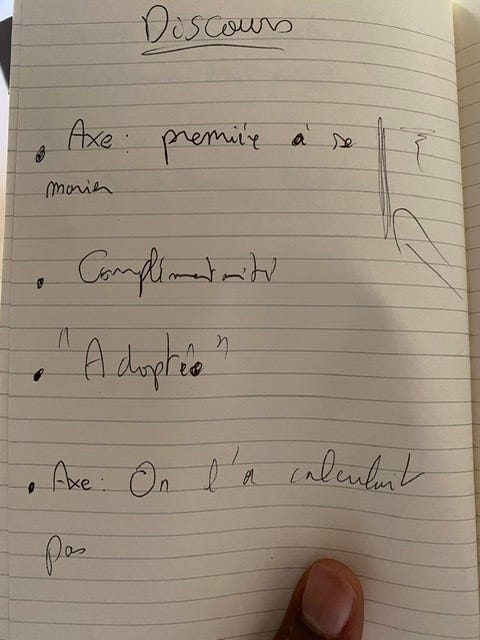 Discours
• Axe : première à se
marier
• Complémentarité
• "Adoptée"
• Axe : On l'a calculait
pas